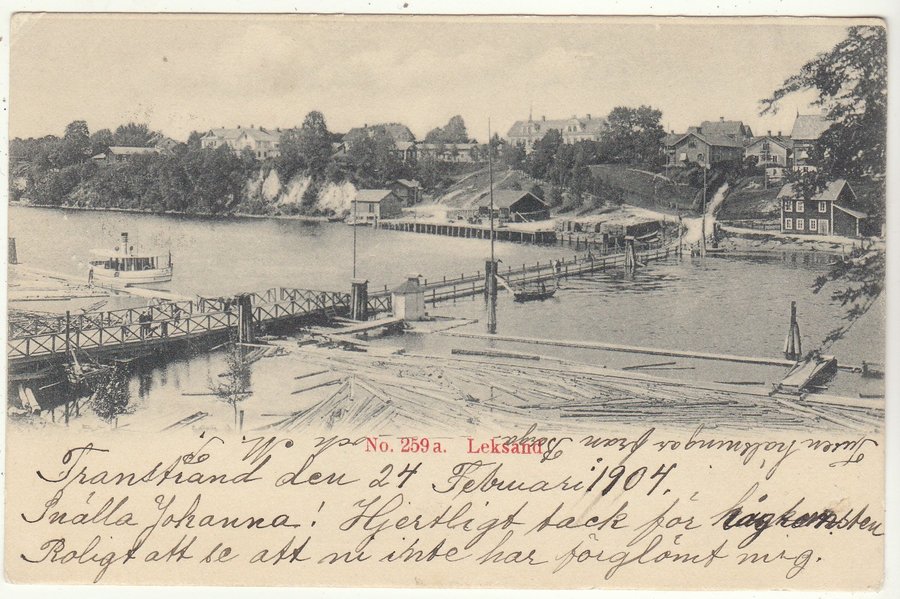 No. 259a. Leksand.
Transtrand den 24 Februari 1904.
Snälla Johanna! Hjertligt tack för hågkomsten
Roligt att se att ni inte har förglömt mig.
Tusen hälsningar från
och M.